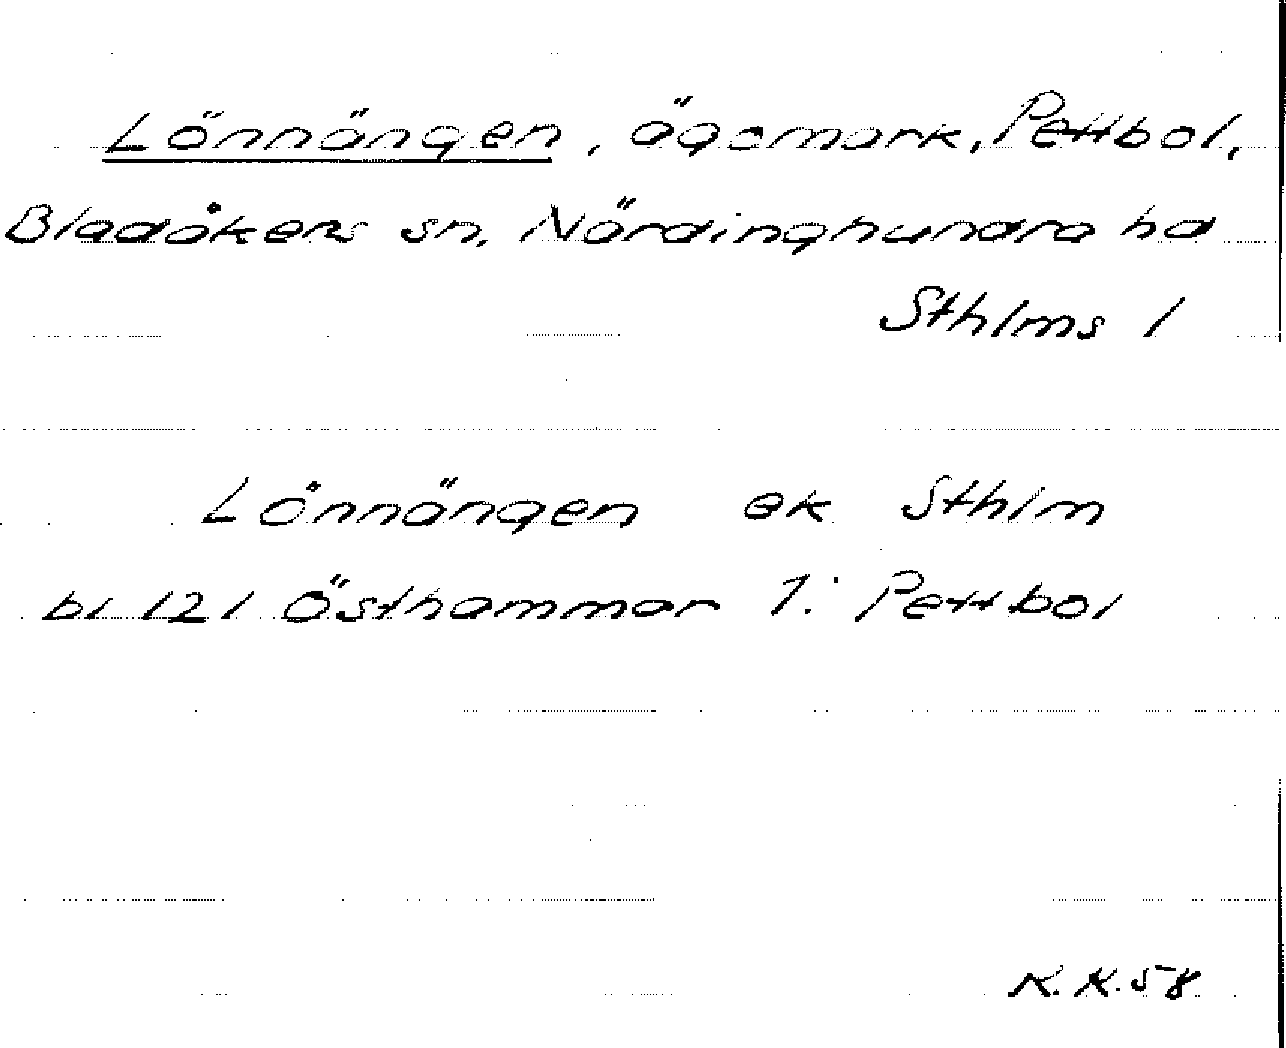 Lönnängen, ägomark, Pettbol,
Bladåkers sn, Närdinghundra hd
Sthlms l
Lönnängen ek Sthlm
bl 121 Östhammar 7: Pettbol
K.K.58